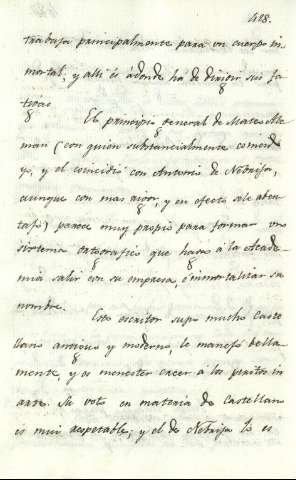 418.
trabaja principalmente para un cuerpo in-
mortal, y alli és adonde ha de dirigir sus fa-
tigas
El principio general de Mateo Ale-
man (con quien substancialmente coincido
yo, y el coincidió con Antonio de Nebrija,
aunque con mas rigor, y en efecto se le aben-
tajó) parece muy propio para formar un
sistema ortografico que haga á la Acade-
mia salir con su empresa, é inmortalizar su
nombre.
Este escritor supo mucho caste
llano antiguo y moderno, le manejó bella-
mente, y es menester creer á los peritos in
arte. Su voto en materia de Castellano
es mui respetable; y el de Nebrija lo es